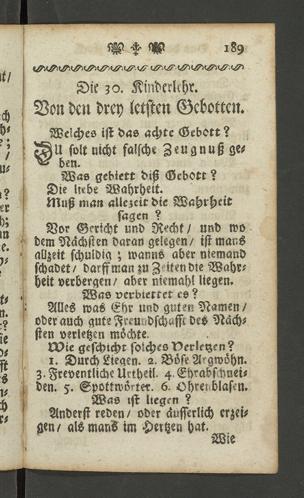 189
Die 30. Kinderlehr.
Von den drey letsten Gebotten.
Welches ist das achte Gebott?
DU solt nicht falsche Zeugnuß ge-
ben.
Was gebiett diß Gebott?
Die liebe Wahrheit.
Muß man allezeit die Wahrheit
sagen?
Vor Gericht und Recht / und wo
dem Nächsten daran gelegen / ist mans
allzeit schuldig; wanns aber niemand
schadet / darff man zu Zeiten die Wahr-
heit verbergen / aber niemahl liegen.
Was verbiettet es?
Alles was Ehr und guten Namen /
oder auch gute Freundschafft des Näch-
sten verletzen möchte.
Wie geschicht solches Verletzen?
1. Durch Liegen. 2. Böse Argwöhn.
3. Freventliche Urtheil. 4. Ehrabschnei-
den. 5. Spottwörter. 6. Ohrenblasen.
Was ist liegen?
Anderst reden / oder äusserlich erzei-
gen / als mans im Hertzen hat.
Wie